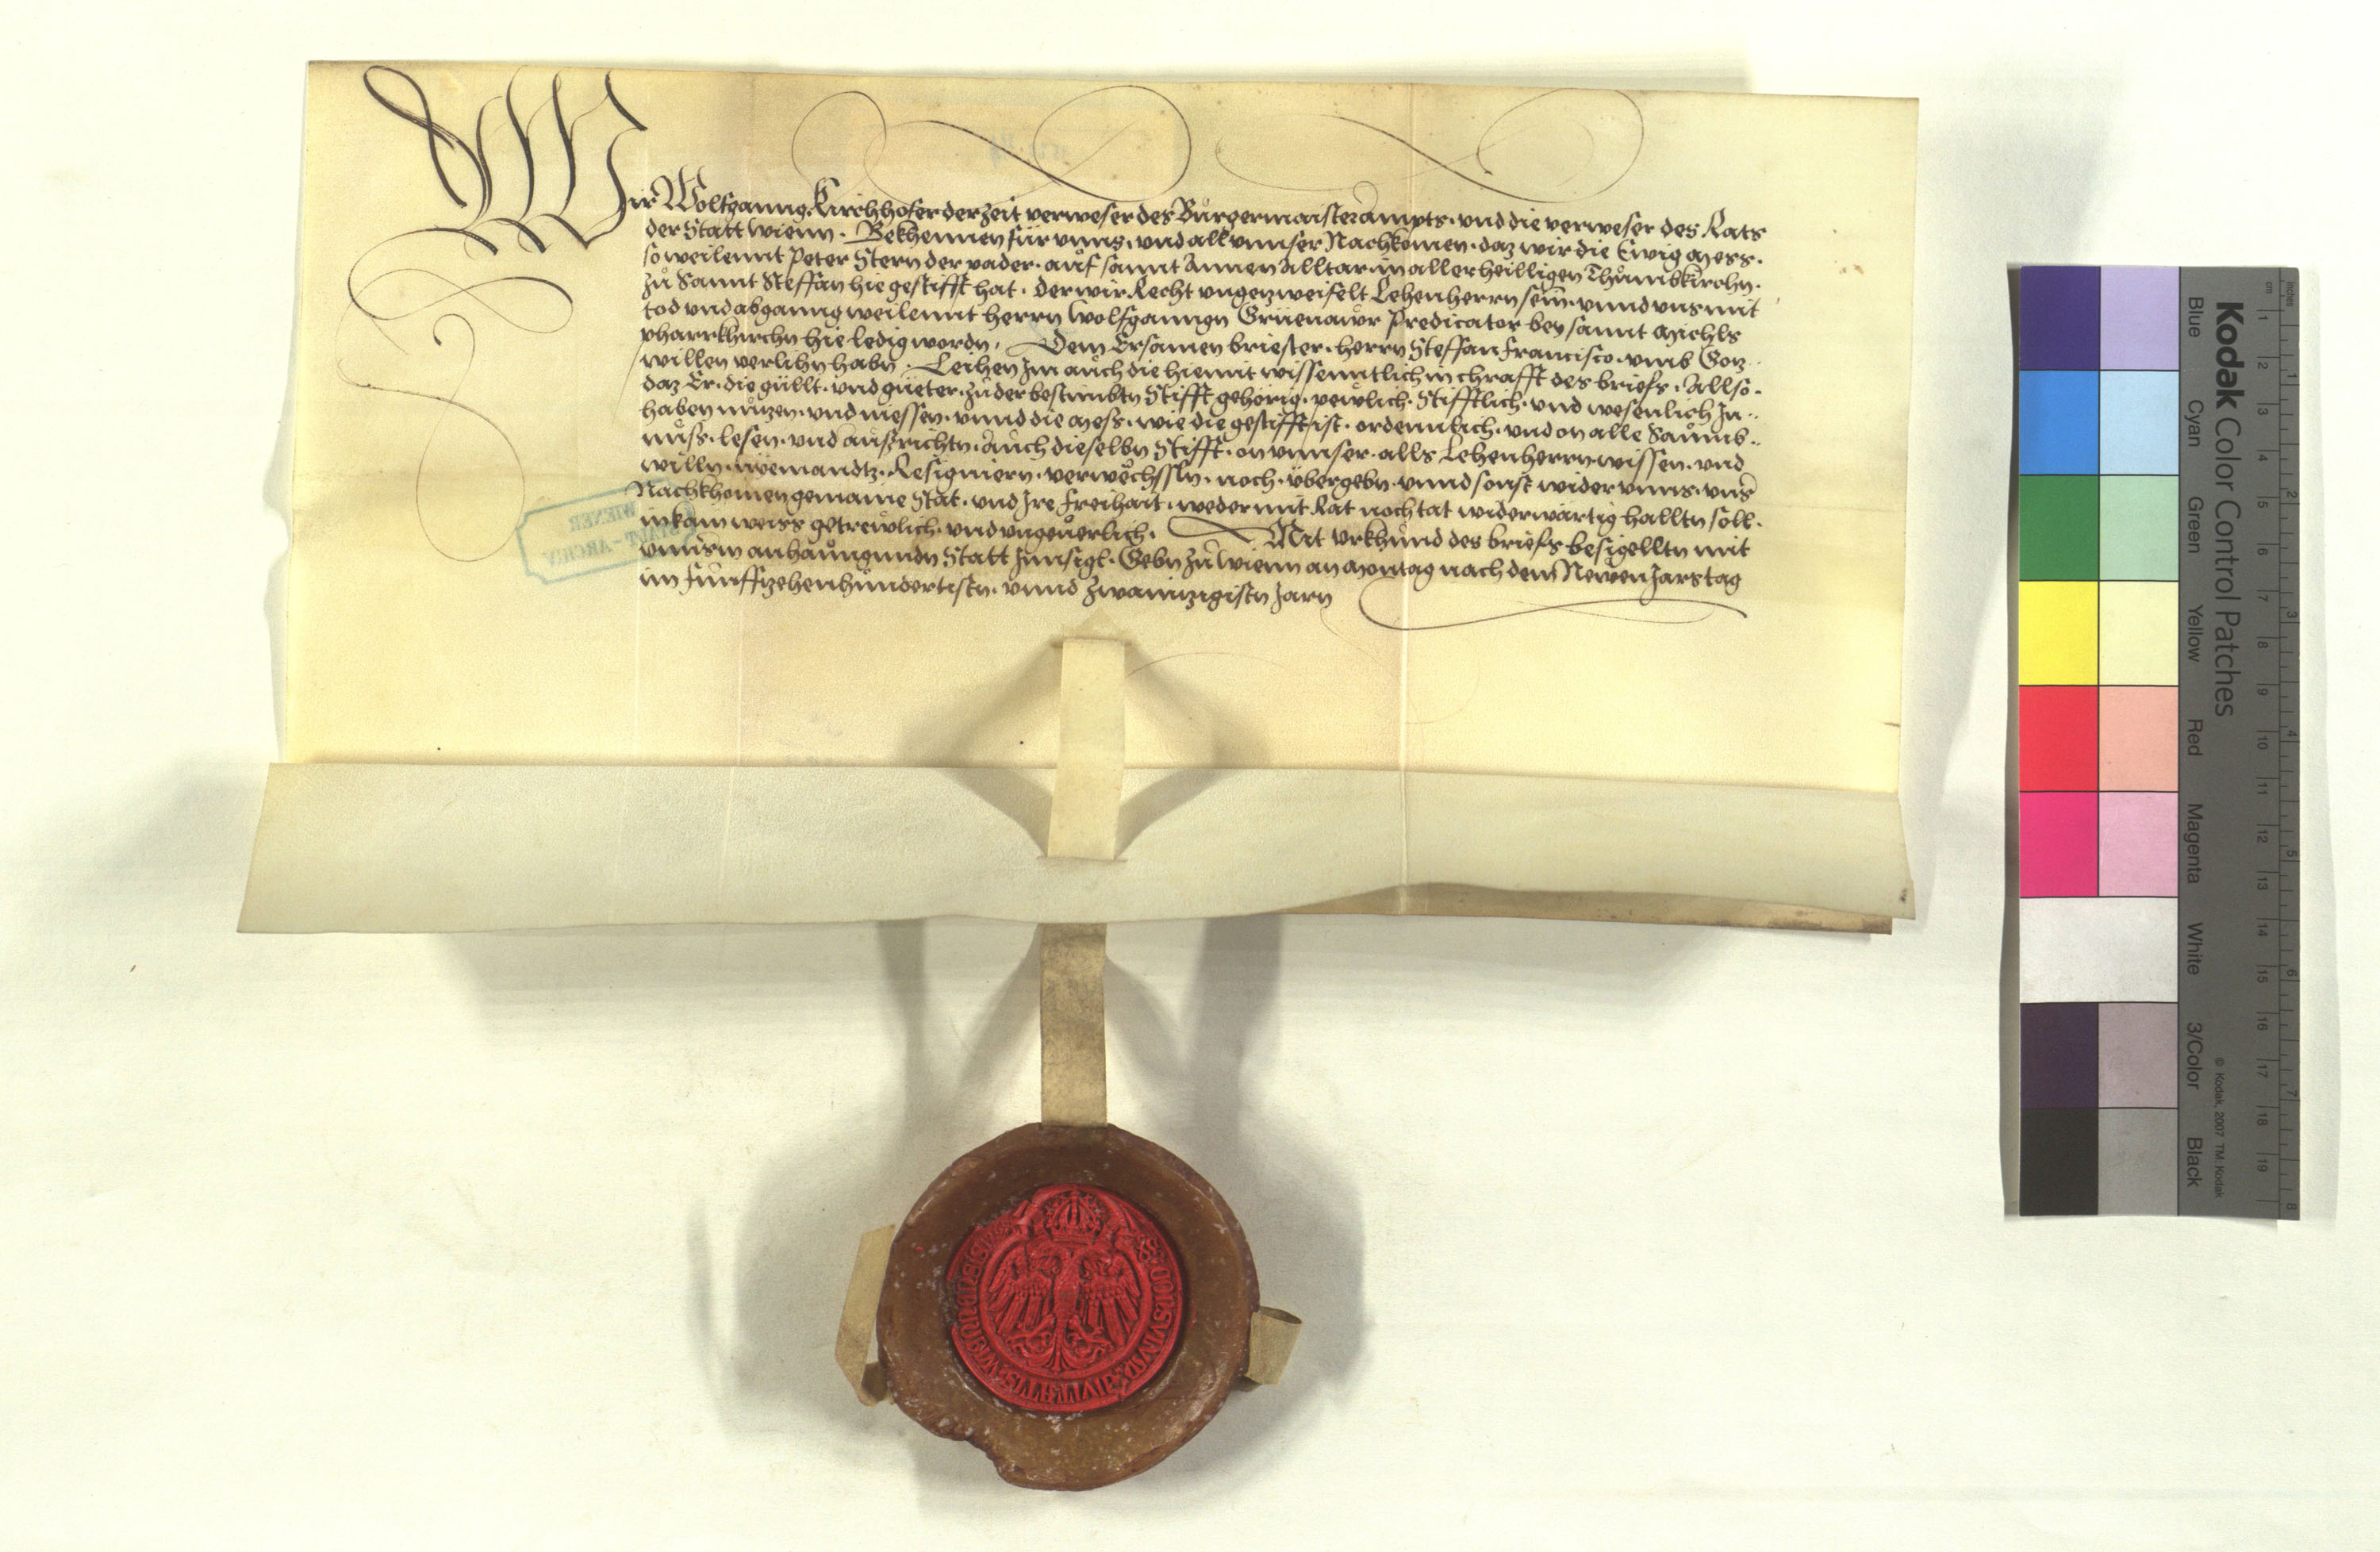 Wir Wolfganng Kirchhofer der Zeit verweser des Bůrgermaister Ampts. vnd die verweser des Rats
der Statt Wienn. Bekhennen für vnns. vnd all vnnser Nachkomen. daz wir die Ewig Mess.
so weilennt Peter Stern der vader. auf sannt Annen Alltar. in aller heilligen Thůmbkirchn.
zů Sannt Steffan hie gestifft hat. der wir Recht vngezweifelt Lehenherrn sein. vnnd vns mit
tod vnd abganng weilennt herrn Wolfganngn Grüenawr Predicator bey sannt Michls
pharrkhirchn hie ledig wordn. Dem Ersamen briester. herrn Steffan Francisco. vmb Goz
willen verlihn habn. Leihen Im auch die hiemit wissenntlich in chrafft des briefs. Allso.
daz Er. die güllt. vnd güeter. zů der bestimbtn Stifft gehörig. pewlich. Stifftlich. vnd wesenlich Jn
haben nuzen. vnd niessen. vnnd die Mess. wie die gestifft ist. ordennlich. vnd on alle Saůmb
nůss. lesen. vnd außrichtn. Auch dieselbn Stifft. on vnnser. alls Lehenherrn wissen. vnd
willn. niemandtz. Resigniern. verwechssln. noch. übergebn. vnnd sonst wider vnns. vnser
Nachkhomen gemaine Stat. vnd Jre Freihait. weder mit Rat noch tat widerwärtig halltn soll.
in kain weiss getrewlich. vnd vngeuerlich. Mit vrkhůnd des briefs besigelltn mit
vnnserm anhaůngundn Statt Jnnsigl. Gebn zů Wienn an Montag nach dem Newen Jarstag
im Fünffzehenhůndertistn. vnnd Zwainnzigistn Jarn
WIENER
STADT-ARCHIV
Kodak Color Control Patches
Blue Cyan Green Yellow Red Magenta White 3/Color Black
© Kodak, 2007 TM: Kodak
inches 1 2 3 4 5 6 7 8
cm 1 2 3 4 5 6 7 8 9 10 11 12 13 14 15 16 17 18 19